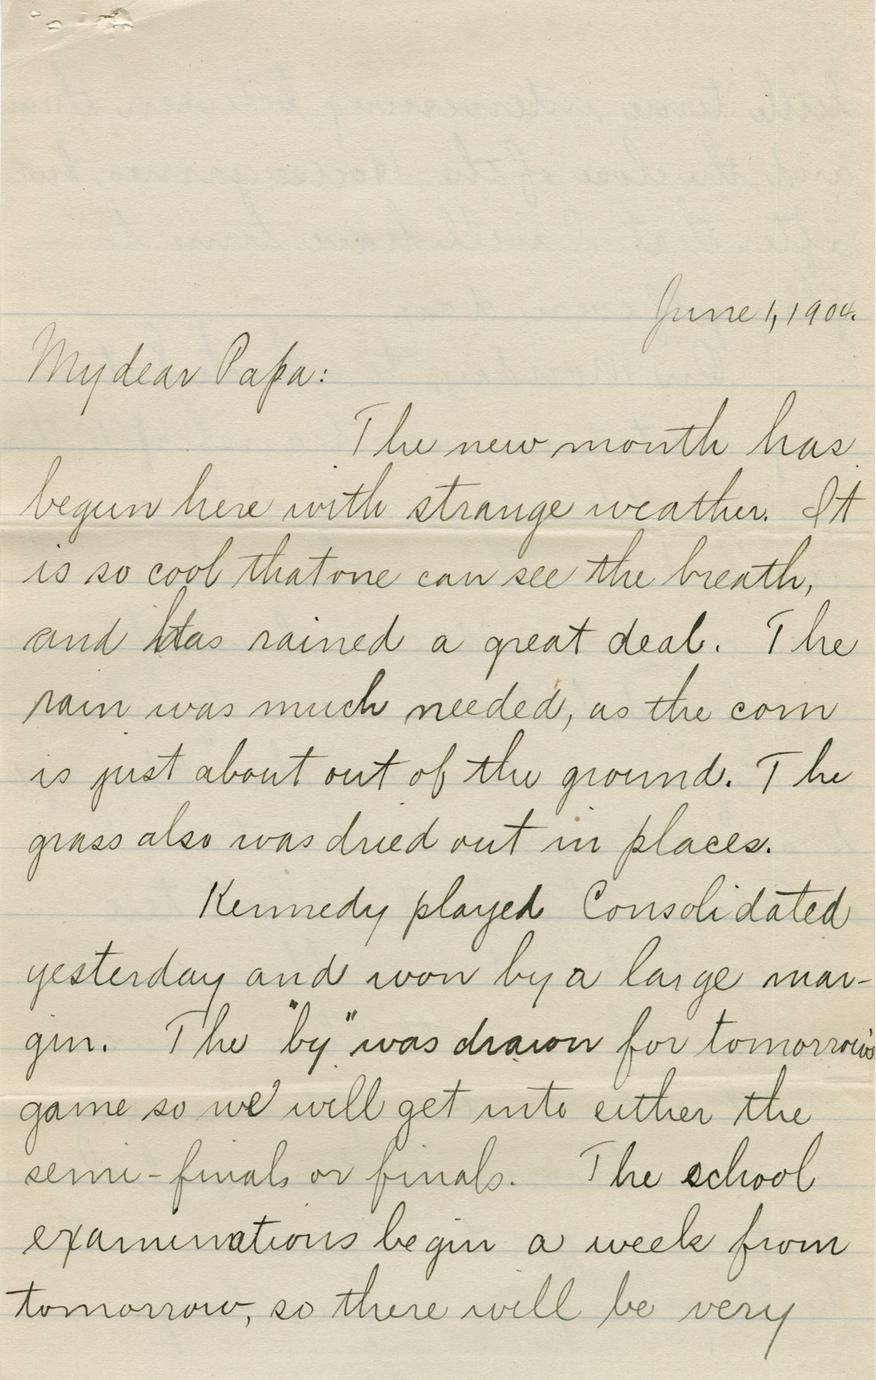 June 1, 1904.
My dear Papa:
The new month has
begun here with strange weather. It
is so cool that one can see the breath,
and has rained a great deal. The
rain was much needed, as the corn
is just about out of the ground. The
grass also was dried out in places.
Kennedy played Consolidated
yesterday and won by a large mar-
gin. The "by" was drawn for tomorrow's
game so we will get into either the
semi-finals or finals. The school
examinations begin a week from
tomorrow, so there will be very